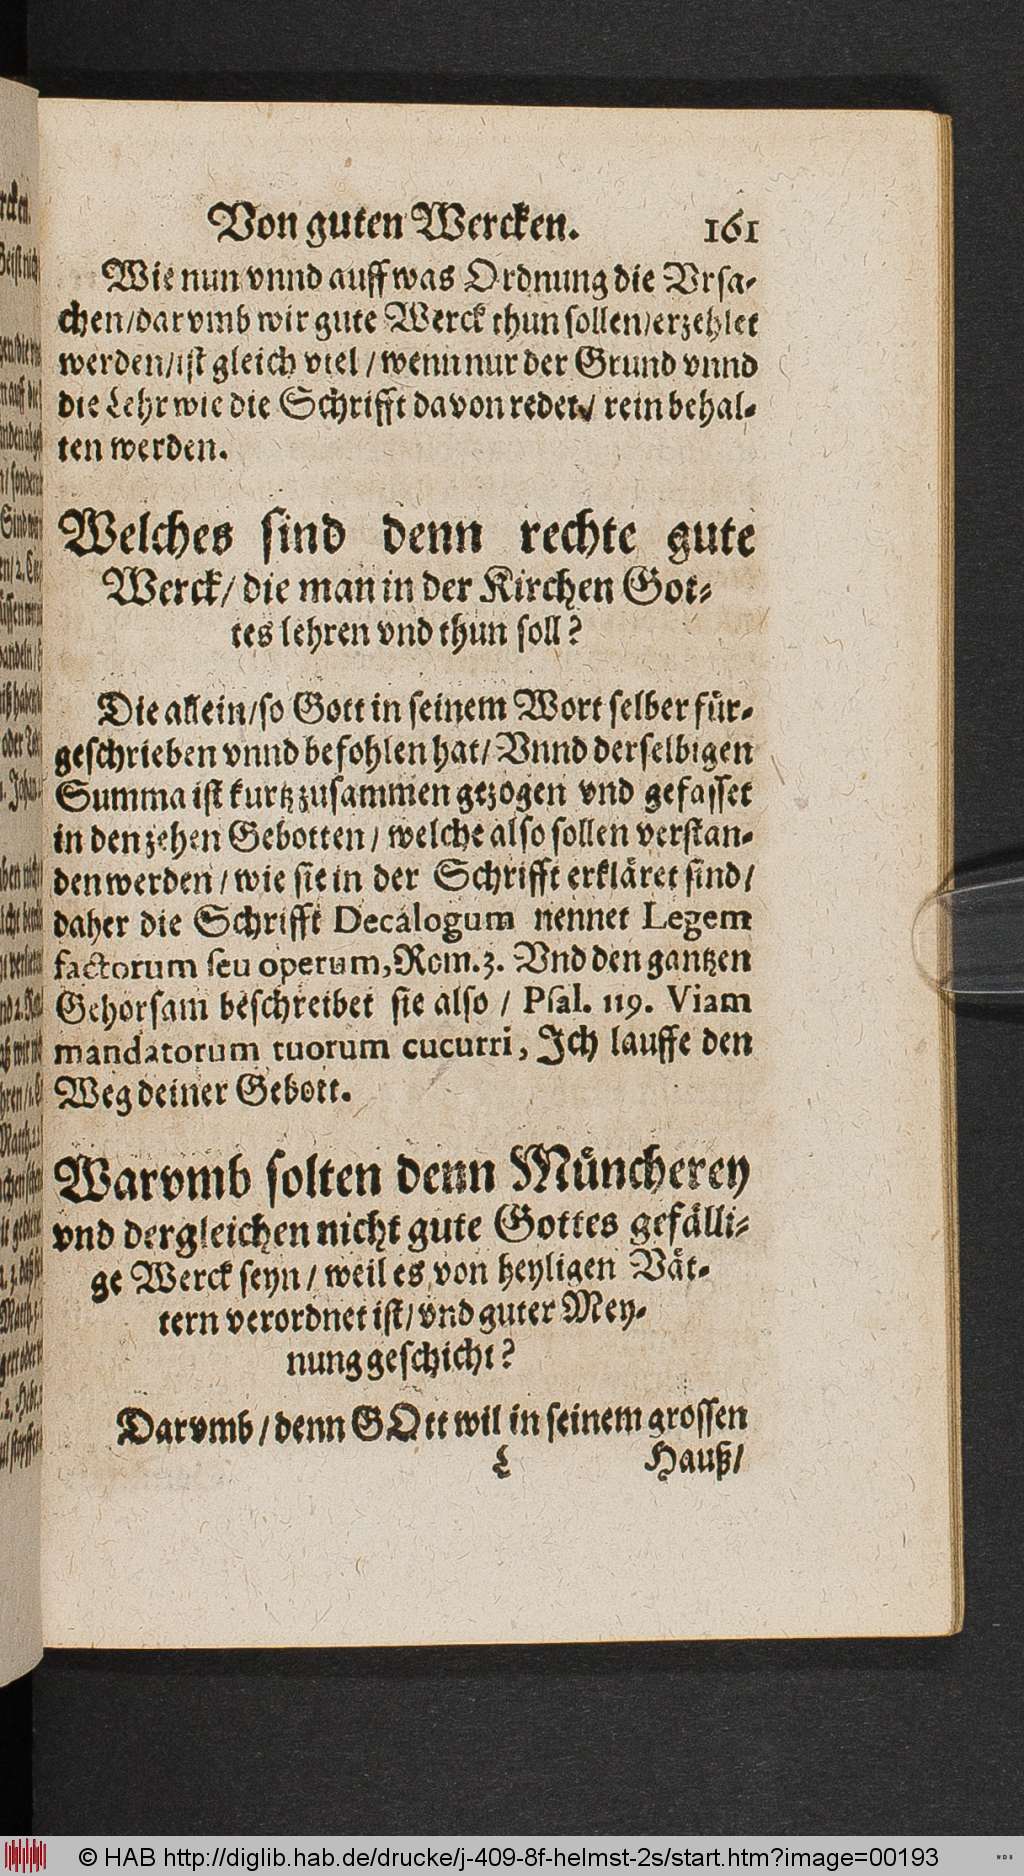 Von guten Wercken. 161
Wie nun vnnd auff was Ordnung die Vrsa-
chen/darvmb wir gute Werck thun sollen/erzehlet
werden/ist gleich viel/wenn nur der Grund vnnd
die Lehr wie die Schrifft davon redet/ rein behal-
ten werden.
Welches sind denn rechte gute
Werck/ die man in der Kirchen Got-
tes lehren vnd thun soll?
Die allein/so Gott in seinem Wort selber für-
geschrieben vnnd befohlen hat/ Vnnd derselbigen
Summa ist kurtz zusammen gezogen vnd gefasset
in den zehen Gebotten/ welche also sollen verstan-
den werden/ wie sie in der Schrifft erkläret sind/
daher die Schrifft Decalogum nennet Legem
factorum seu operum, Rom. 3. Vnd den gantzen
Gehorsam beschreibet sie also/ Psal. 119. Viam
mandatorum tuorum cucurri, Ich lauffe den
Weg deiner Gebott.
Warvmb solten denn Müncherey
vnd dergleichen nicht gute Gottes gefälli-
ge Werck seyn/ weil es von heyligen Vät-
tern verordnet ist/ vnd guter Mey-
nung geschicht?
Darvmb/ denn GOtt wil in seinem grossen
L Hauß/
© HAB http://diglib.hab.de/drucke/j-409-8f-helmst-2s/start.htm?image=00193